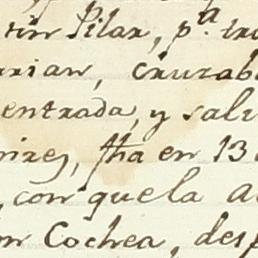 tin Pilar, p.ª tra
rian, cruzab
entrada, y salv
ires, fha en 13 d
, con que la a
n Cochea, desp